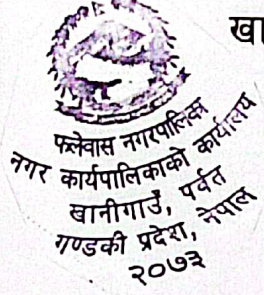 खा
फलेवास नगरपालिका
नगर कार्यपालिकाको कार्यालय
खानीगाउँ, पर्वत
गण्डकी प्रदेश, नेपाल
२०७३